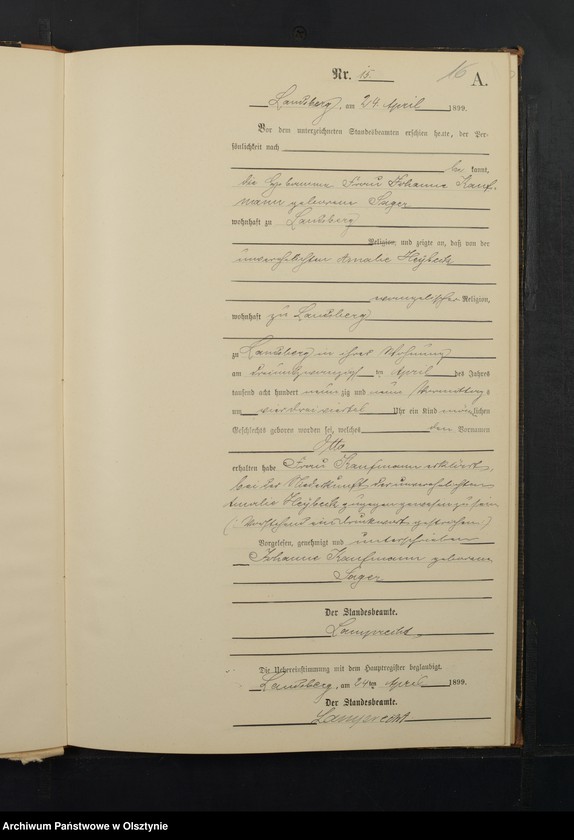 Nr. 15.
16 A.
Landsberg, am 24 April 1899.
Vor dem unterzeichneten Standesbeamten erschien heute, der Per-
sönlichkeit nach
be kannt,
die Hebamme Frau Johanne Kauf-
mann geborene Sager
wohnhaft zu Landsberg
Religion, und zeigte an, daß von der
unverehelichten Amalie Heybeck
evangelischer Religion,
wohnhaft zu Landsberg
zu Landsberg in ihrer Wohnung
am dreiundzwanzigsten April des Jahres
tausend acht hundert neun zig und neun Vormittags
um vierdreiviertel Uhr ein Kind männlichen
Geschlechts geboren worden sei, welches den Vornamen
Otto
erhalten habe. Frau Kaufmann erklärt,
bei der Niederkunft der unverehelichten
Amalie Heybeck zugegen gewesen zu sein
(: Vorstehend ein Druckwort gestrichen :)
Vorgelesen, genehmigt und unterschrieben
Johanne Kaufmann geborene
Sager
Der Standesbeamte.
Lamprecht
Die Uebereinstimmung mit dem Hauptregister beglaubigt.
Landsberg, am 24ten April 1899.
Der Standesbeamte.
Lamprecht
Archiwum Państwowe w Olsztynie